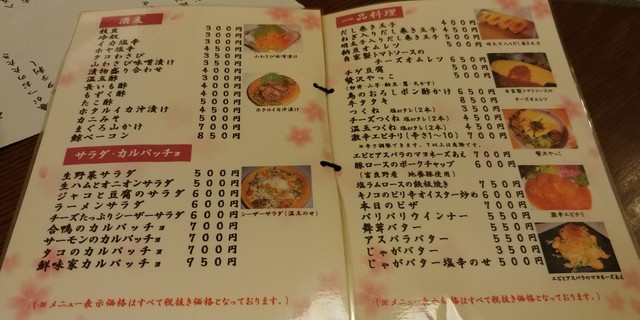 酒菜
枝豆 300円
冷奴 300円
イカ塩辛 350円
ホヤ塩辛 450円
タコわさび 350円
山わさび味噌漬け
漬物盛り合わせ
温玉酢
長いも酢
もずく酢
たこ酢
ホタルイカ沖漬け
カニみそ 500円
まぐろ山かけ 700円
鯨ベーコン 850円
山わさび味噌漬け
ホタルイカ沖漬け
サラダ・カルパッチョ
生野菜サラダ 500円
生ハムとオニオンサラダ 500円
ジャコと豆腐のサラダ 600円
ラーメンサラダ 600円
チーズたっぷりシーザーサラダ 600円
合鴨のカルパッチョ 700円
サーモンのカルパッチョ 700円
タコのカルパッチョ 700円
鮮味家カルパッチョ 950円
シーザーサラダ(温玉のせ)
(※メニュー表示価格はすべて税抜き価格となっております。)
一品料理
だし巻き玉子 400円
ねぎ入りだし巻き玉子 450円
明太子入りだし巻き玉子 500円
納豆オムレツ 500円
自家製トマトソースの
チーズオムレツ 650円
チゲ豆腐
贅沢やっこ
鳥のおろしポン酢かけ
牛タタキ
つくね 塩orタレ(2本)
チーズつくね 塩orタレ(2本) 450円
温玉つくね 塩orタレ(2本) 450円
激辛エビチリ(辛さ1~10) 700円
エビとアスパラのマヨネーズあえ 700円
豚ロースのポークチャップ 600円
(富良野産 地養豚使用)
塩ラムロースの鉄板焼き 750円
キノコのピリ辛オイスター炒め 600円
本日のピザ 700円
パリパリウインナー 550円
舞茸バター 550円
アスパラバター 550円
じゃがバター 350円
じゃがバター塩辛のせ 500円
明太子入りだし巻き玉子
自家製トマトソースの
チーズオムレツ
贅沢やっこ
激辛エビチリ
エビとアスパラのマヨネーズあえ
(※メニュー表示価格はすべて税抜き価格となっております。)